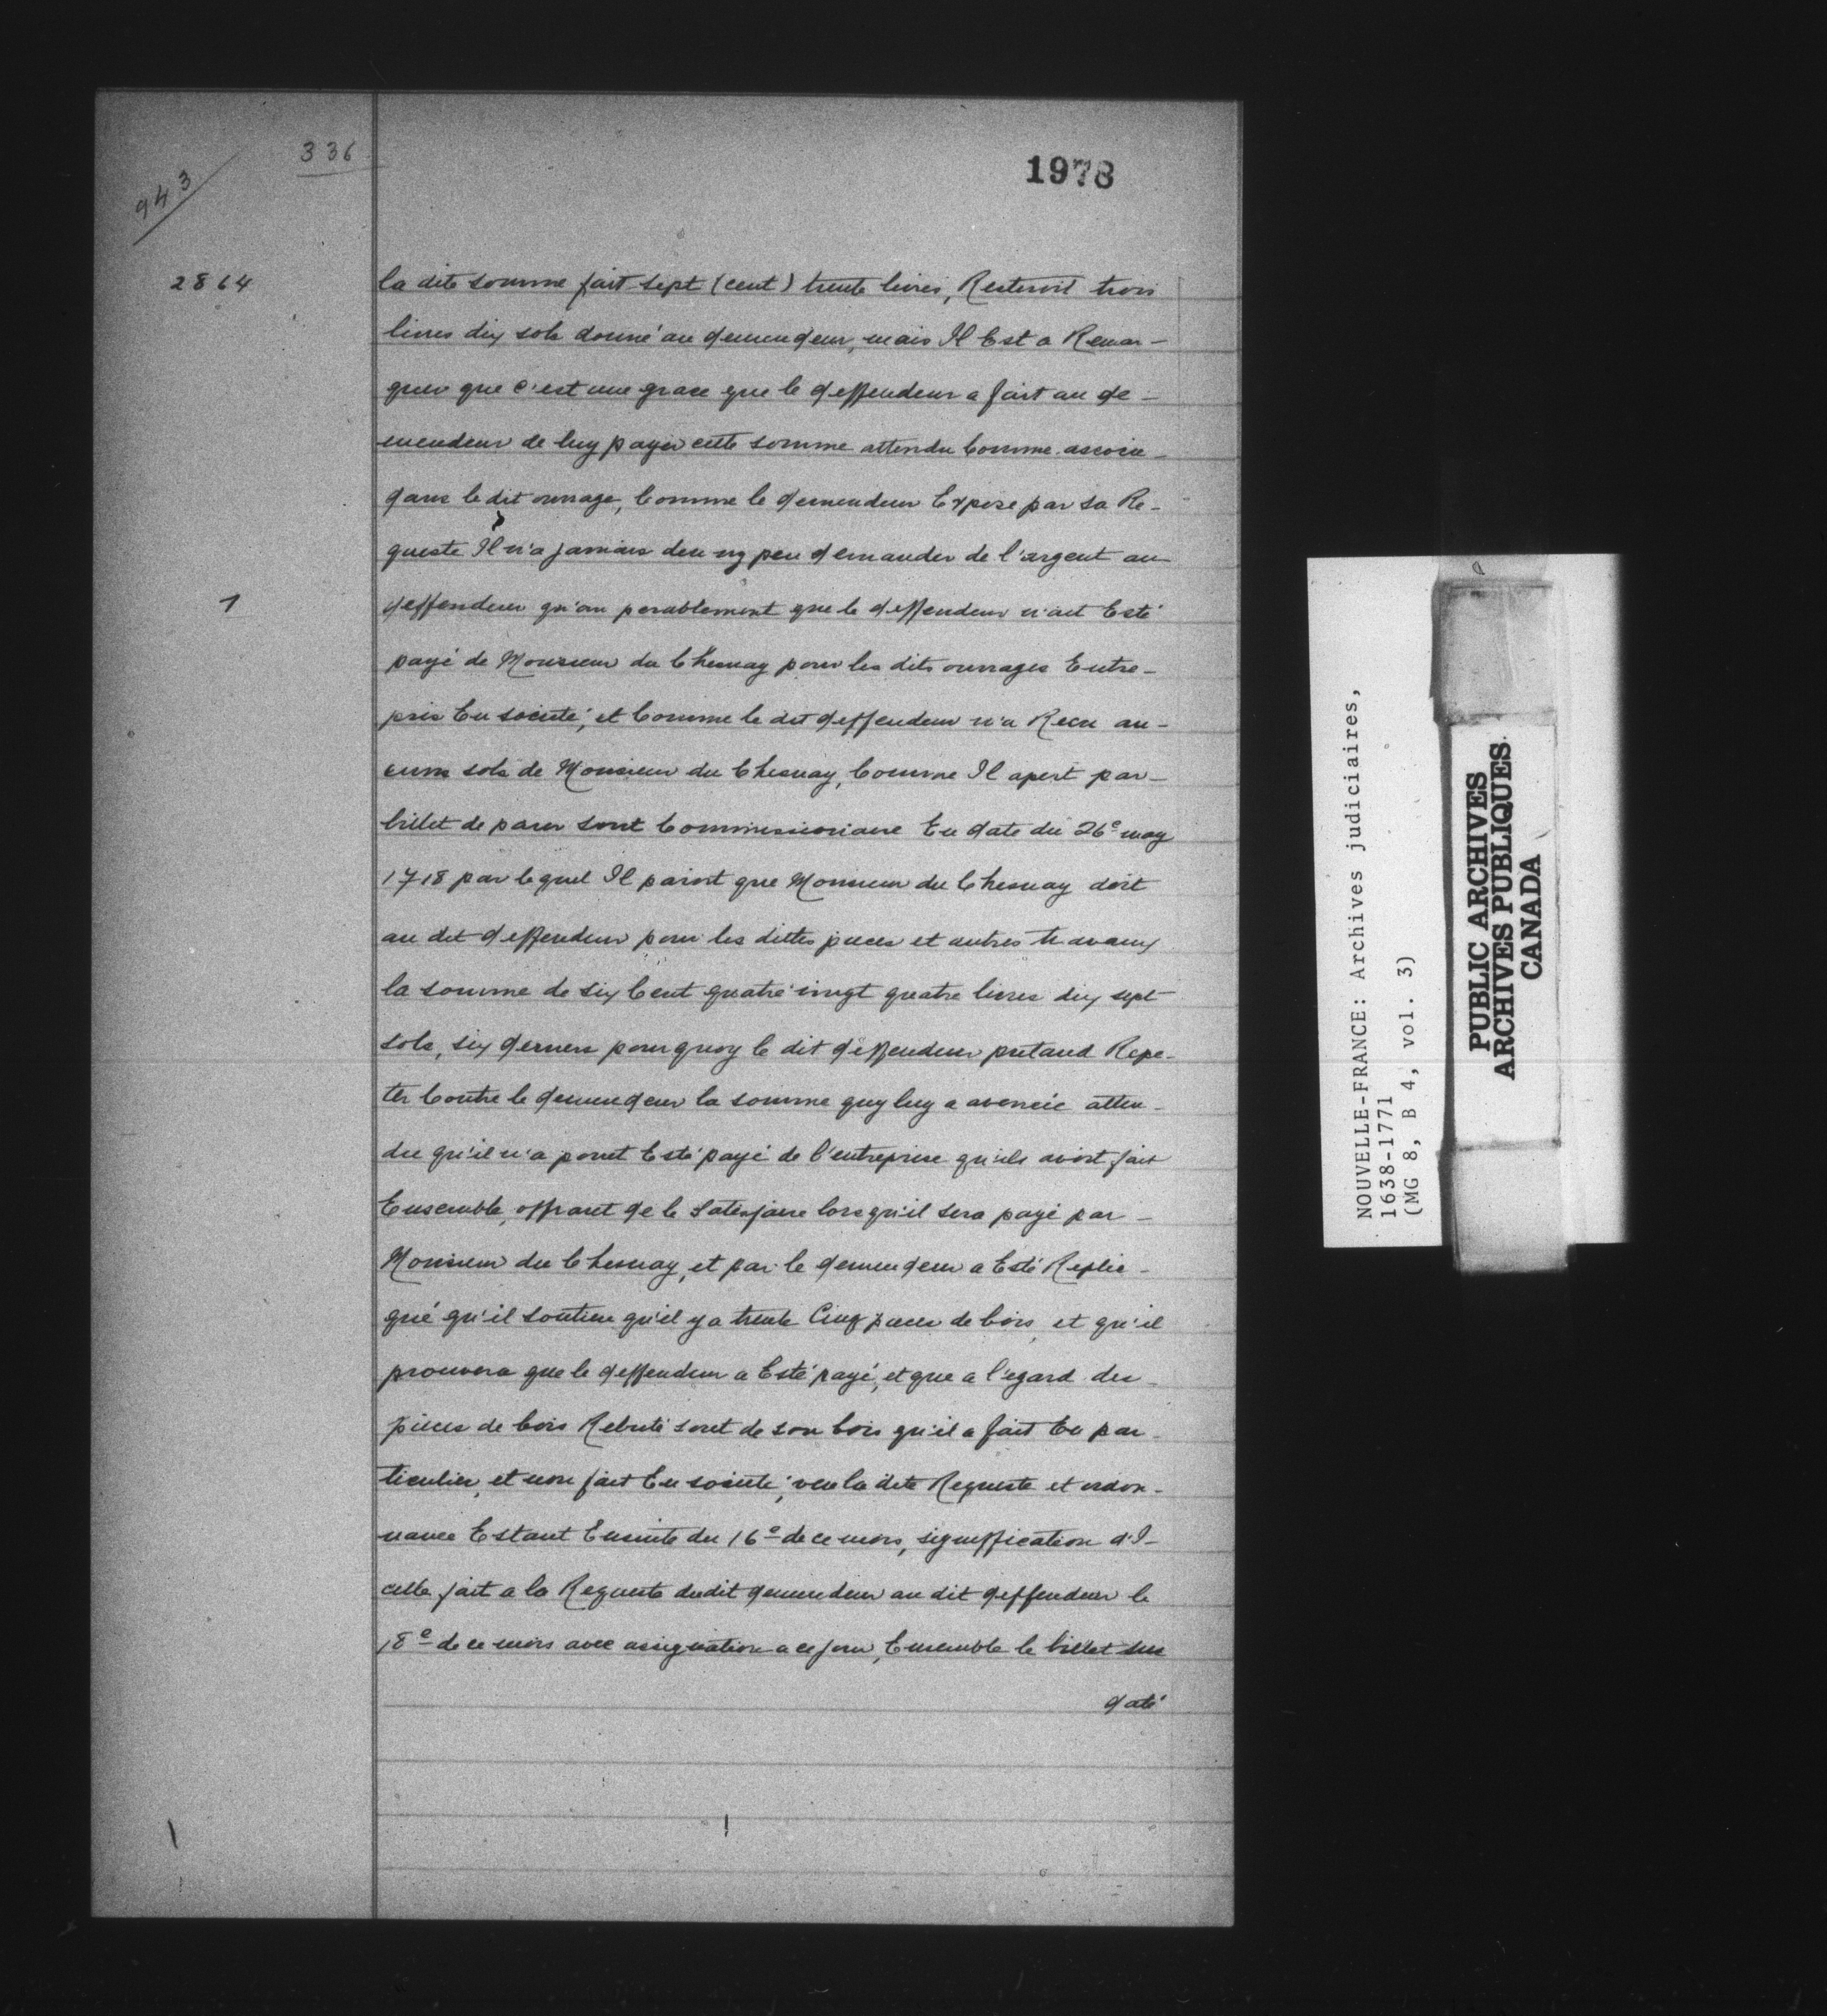 336
943
1978
2864
la dite somme fait sept (cent) trente livres, Resteroit trois
livres dix sols donné au demendeur, mais Il Est a Remar-
quer que c'est une grace que le deffendeur a fait au de-
mendeur de luy payer cette somme attendu Comme associe
dans le dit ouvrage, Comme le demendeur Expose par sa Re-
queste Il n'a jamais deu ny peu demander de l'argent au
1
deffendeur qu'au perablement que le deffendeur n'ait Esté
payé de Monsieur du Chesnay pour les dits ouvrages Entre-
pris En société, et Comme le dit deffendeur n'a Recu au-
cuns sols de Monsieur du Chesnay, Comme Il apert par
billet de parer sont Commissionaire En date du 26e may
1718 par lequel Il paroit que Monsieur du Chesnay doit
au dit deffendeur pour les dittes pieces et autres travaux
la somme de six Cent quatre vingt quatre livres dix sept
sols, six deniers pourquoy le dit deffendeur pretand Repe-
ter Contre le demendeur la somme quy luy a avencée atten-
du qu'il n'a point Esté payé de l'entreprise qu'ils avoit fait
Ensemble, offrant de le Satisfaire lorsqu'il sera payé par
Monsieur du Chesnay, et par le demendeur a Esté Replic-
qué qu'il soutien qu'il y a trente Cinq pieces de bois, et qu'il
prouvera que le deffendeur a Esté payé, et que a l'egard des
pieces de bois Rebuté sont de son bois qu'il a fait En par-
ticulier, et non fait En société; veu la dite Requeste et ordon-
nance Estant Ensuite du 16e de ce mois, signiffication d'I-
celle fait a la Requeste dudit demendeur au dit deffendeur le
18e de ce mois avec assignation a ce jour, Ensemble le billet sus
daté
NOUVELLE-FRANCE: Archives judiciaires,
1638-1771
(MG 8, B 4, vol. 3)
PUBLIC ARCHIVES
ARCHIVES PUBLIQUES
CANADA